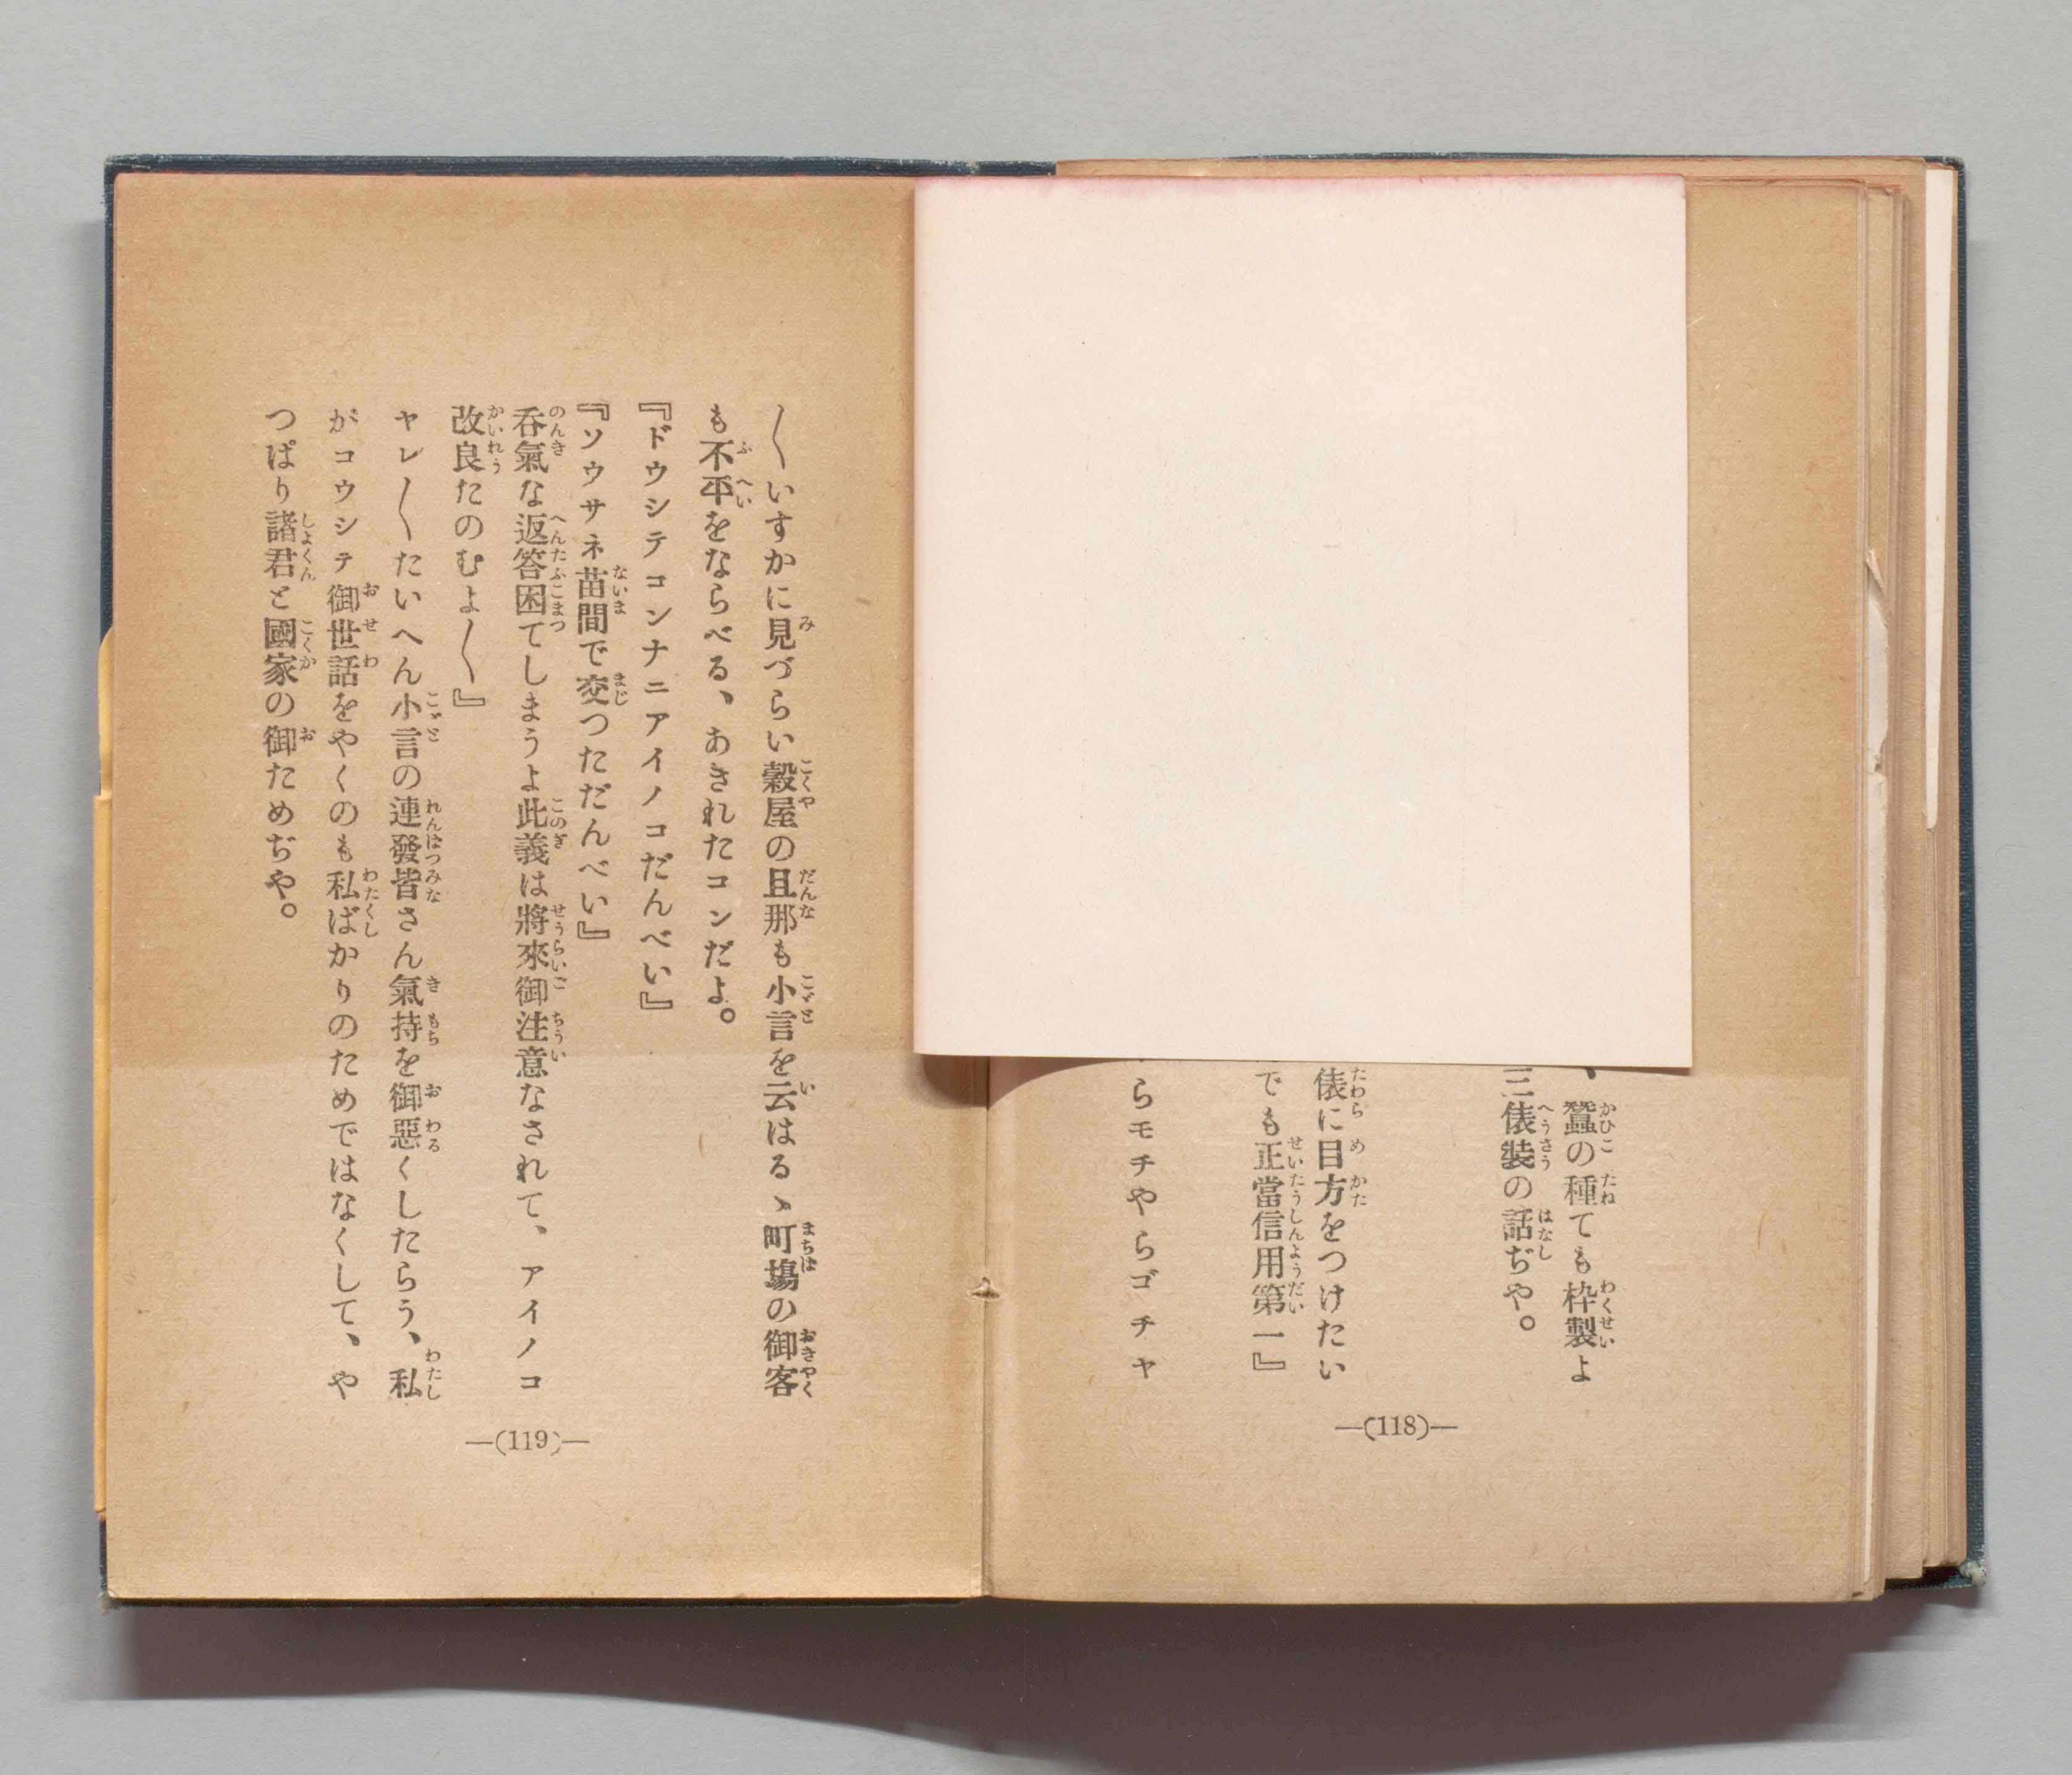 、蠶の種ても枠製よ
三俵装の話ぢや。
俵に目方をつけたい
でも正當信用第一』
らモチやらゴチヤ
—(118)—
〱いすかに見づらい穀屋の且那も小言を云はるゝ町塲の御客
も不平をならべる、あきれたコンだよ。
『ドウシテコンナニアイノコだんべい』
『ソウサネ苗間で交つただんべい』
呑氣な返答困てしまうよ此義は將來御注意なされて、アイノコ
改良たのむよ〱』
ヤレ〱たいへん小言の連發皆さん氣持を御惡くしたらう、私
がコウシテ御世話をやくのも私ばかりのためではなくして、や
つぱり諸君と國家の御ためぢや。
—(119)—